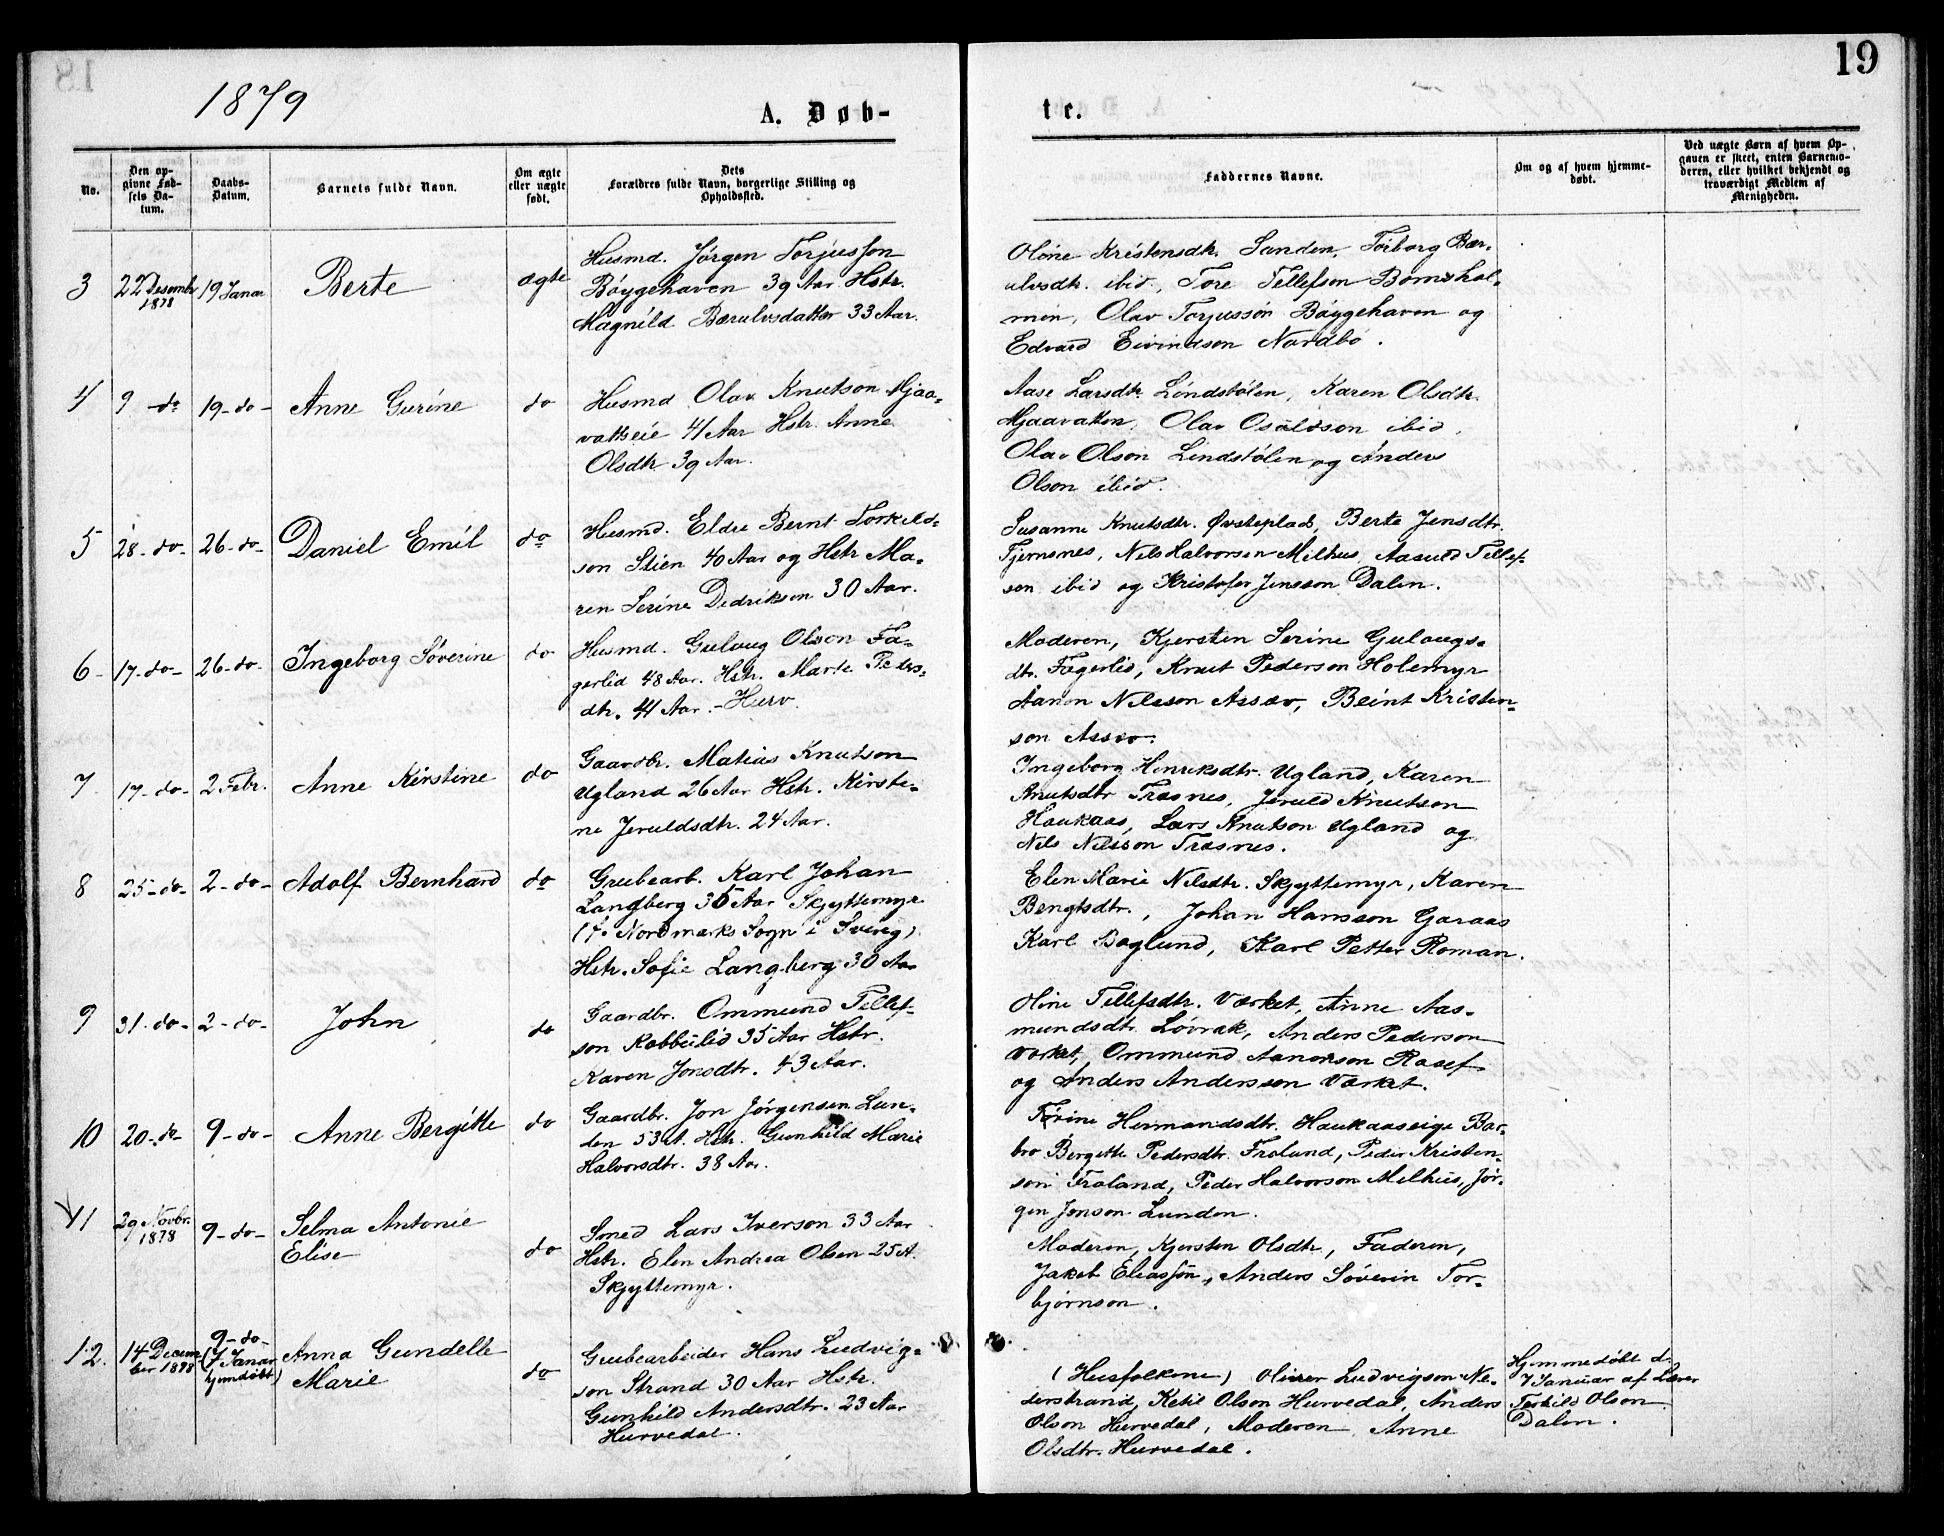 19
1879
A. Døb-
te.
No.
Den op-
givne Fød-
sels Da-
tum.
Daabs-
Datum.
Barnets fulde Navn.
Om ægte
eller uægte
født.
Dets
Forældres fulde Navn, borgerlige Stilling og
Opholdssted.
Faddernes Navne.
Om og af hvem hjemme-
døbt.
Ved uægte Børn af hvem Op-
gaven er skeet, enten Barnemo-
deren, eller hvilket bekjendt og
troværdigt Medlem af
Menigheden.
3
22 Desembr
1878
19 Januar
Berte
ægte
Husmd. Jørgen Torjusson
Bøygehaven 39 Aar Hstr.
Magnild Bærulvsdatter 33 Aar.
Oline Kristensdtr. Sanden, Torborg Bær-
ulvsdtr. ibid, Tore Tellefson Bomshol-
men, Olav Torjusson Bøygehaven og
Edvard Eivindson Nordbø.
4
9 - do
19 - do -
Anne Gurine
do
Husmd Olav Knutson Mjaa-
vatseie 41 Aar Hstr. Anne
Olsdtr 39 Aar.
Aase Larsdtr. Lindstølen, Karen Olsdtr.
Mjaavatten, Olav Osuldson ibid,
Olav Olson Lindstølen og Anders
Olson ibid.
5
28 - do -
26 - do -
Daniel Emil
do
Husmd. Eldre Bernt Torkild-
son Stien 40 Aar og Hstr Ma-
ren Serine Dedriksen 30 Aar.
Susanne Knutsdtr. Østeplads, Berte Jensdtr.
Tjernsnes, Nils Halvorsen Milhus, Aasuld Tellef-
son ibid og Kristofer Jensson Dalen.
6 -
17 - do -
26 - do -
Ingeborg Søverine
do
Husmd. Gulaug Olson Fa-
gerlid 48 Aar. Hstr. Marte Peders-
dtr. 44 Aar. - Hurv.
Moderen, Kjersten Serine Gulaugs-
dtr. Fagerlid, Knut Pederson Holemyr
Aanon Nilsson Assev, Beint Kristen-
son Assev.
7
17 - do -
2 Febr.
Anne Kirstine
do
Gaardbr. Matias Knutson
Ugland 26 Aar Hstr. Kirsti-
ne Jeruldsdtr. 24 Aar.
Ingeborg Henriksdtr. Ugland, Karen
Knutsdtr Træsnes, Jeruld Knutson
Haukaas, Lars Knutson Ugland og
Nils Nilsson Træsnes.
8
25 - do -
2 - do -
Adolf Bernhard
do
Grubearb. Karl Johan
Langberg 35 Aar Skjyttemyr
(f. Nordmarks Sogn i Sverig)
Hstr. Sofie Langberg 30 Aar
Elen Marie Nilsdtr. Skjyttemyr, Karen
Bengtsdtr., Johan Hansson Garaas
Karl Boglund, Karl Petter Roman.
9
31 - do -
2 - do -
John
do
Gaardbr. Ommund Tellef-
son Rabbelid 35 Aar Hstr.
Karen Jonsdtr. 43 Aar.
Oline Tellefsdtr. Værket, Anne Aas-
mundsdtr. Løvrak, Anders Pederson
Værket, Ommund Aanonson Rosef
og Anders Andersson Værket.
10
20 - do -
9 - do -
Anne Bergitte
do
Gaardbr. Jon Jørgensen Lun-
den 53 A. Hstr. Gunhild Marie
Halvorsdtr. 38 Aar.
Torine Hermandsdtr. Haukaaseige Bar-
bro Bergette Pedersdtr. Froland, Peder Kristen-
son Froland, Peder Halvorson Melhus, Jør-
gen Jonson Lunden.
11
29 Novbr.
1878
9 - do -
Selma Antonie
Elise
do
Smed Lars Iverson 33 Aar
Hstr. Elen Andrea Olsen 25 A.
Skjyttemyr.
Moderen, Kjersten Olsdtr, Faderen,
Jakob Eliasson, Anders Søverin Tor-
bjørnson.
12.
14 Decem-
ber 1878
9 - do -
(7 Januar
hjemdøbt)
Anna Gundelle
Marie
do
Grubearbeider Hans Ludvig-
son Strand 30 Aar Hstr.
Gunhild Andersdtr. 23 Aar
Hurvedal.
(Husfolkene) Oliver Ludvigson Ne-
derstrand, Ketil Olson Hurvedal, Anders
Olson Hurvedal, Moderen Anne
Olsdtr. Hurvedal.
Hjemmedøbt d.
7 Januar af Lærer
Terkild Olson
Dalen.